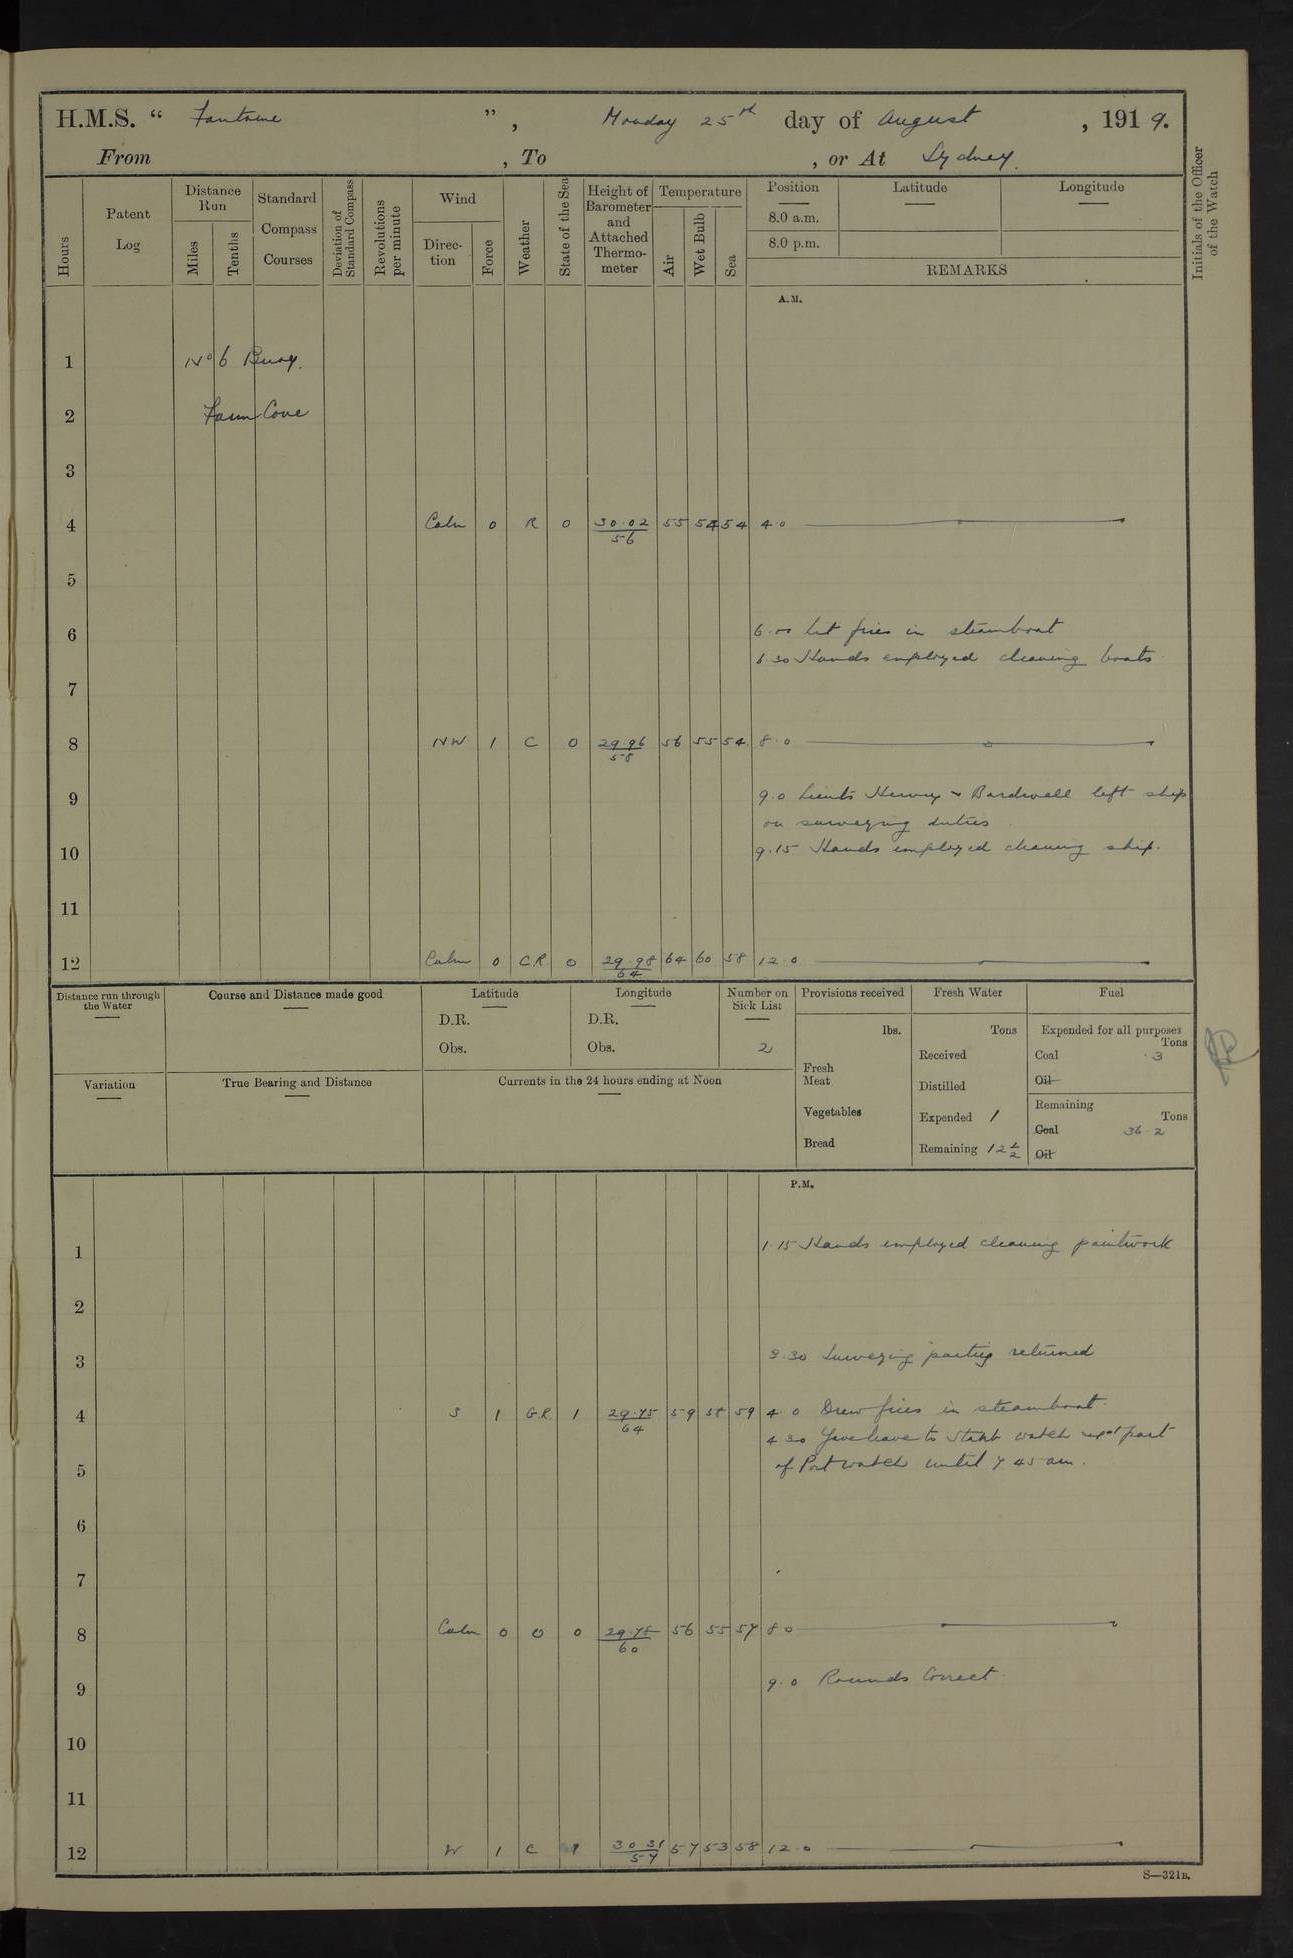 H.M.S. “ Fantome ”, Monday 25th day of August, 1919.
From , To , or At Sydney.
Hours
Patent Log
Distance Run
Miles
Tenths
Standard Compass Courses
Deviation of Standard Compass
Revolutions per minute
Wind
Direction
Force
Weather
State of the Sea
Height of Barometer and Attached Thermometer
Temperature
Air
Wet Bulb
Sea
Position
8.0 a.m.
8.0 p.m.
Latitude
Longitude
REMARKS
Initials of the Officer of the Watch
A.M.
1 No 6 Buoy.
2 Farm Cove
3
4 Calm 0 R 0 30.02/56 55 54 54 4.0
5
6 6.00 Lit fires in steamboat
6.30 Hands employed cleaning boats
7
8 NW 1 C 0 29.96/58 56 55 54 8.0
9 9.0 Lieuts Hervey & Bardwell left ship
on surveying duties
10 9.15 Hands employed cleaning ship.
11
12 Calm 0 CR 0 29.98/64 64 60 58 12.0
Distance run through the Water
Course and Distance made good
Latitude
D.R.
Obs.
Longitude
D.R.
Obs.
Number on Sick List
2
Provisions received
lbs.
Fresh Meat
Vegetables
Bread
Fresh Water
Tons
Received
Distilled
Expended 1
Remaining 12 1/2
Fuel
Expended for all purposes
Tons
Coal .3
Oil
Remaining
Tons
Coal 36.2
Oil
Variation
True Bearing and Distance
Currents in the 24 hours ending at Noon
P.M.
1 1.15 Hands employed cleaning paintwork
2
3 3.30 Surveying parties returned
4 S 1 G.R. 1 29.75/64 59 58 59 4.0 Drew fires in steamboat.
4.30 Gave leave to Starb watch & part
5 of Port watch until 7 45 am.
6
7
8 Calm 0 O 0 29.78/60 56 55 57 8.0
9 9.0 Rounds Correct.
10
11
12 W 1 C 1 30 31/57 57 53 58 12.0
S—321B.